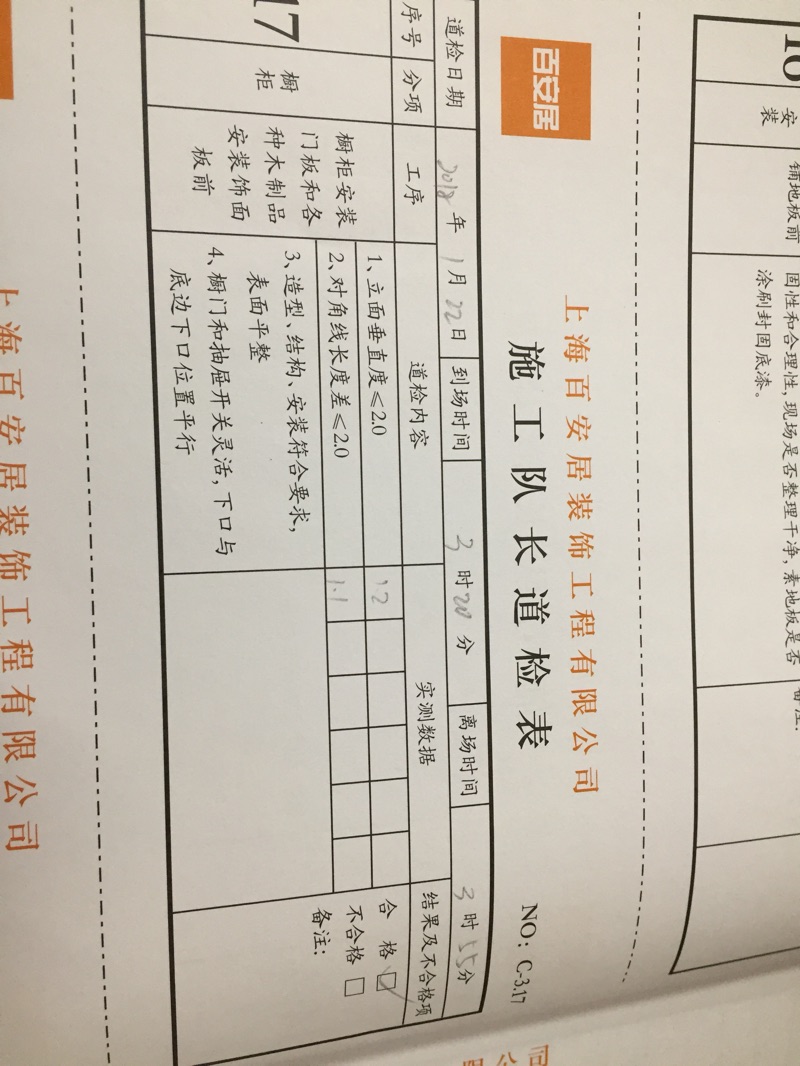 百安居
上海百安居装饰工程有限公司
施工队长道检表
NO: C-3.17
道检日期 2018 年 1 月 22 日 到场时间 3 时 20 分 离场时间 3 时 55 分
序号 分项 工序 道检内容 实测数据 结果及不合格项
17
橱柜
橱柜安装
门板和各
种木制品
安装饰面
板前
1、立面垂直度≤2.0
1.2
2、对角线长度差≤2.0
1.1
3、造型、结构、安装符合要求,
表面平整
4、橱门和抽屉开关灵活,下口与
底边下口位置平行
合 格 ☑
不合格 □
备注:
安装
铺地板前
固性和合理性,现场是否整理干净,素地板是否
涂刷封固底漆。
备注:
上海百安居装饰工程有限公司